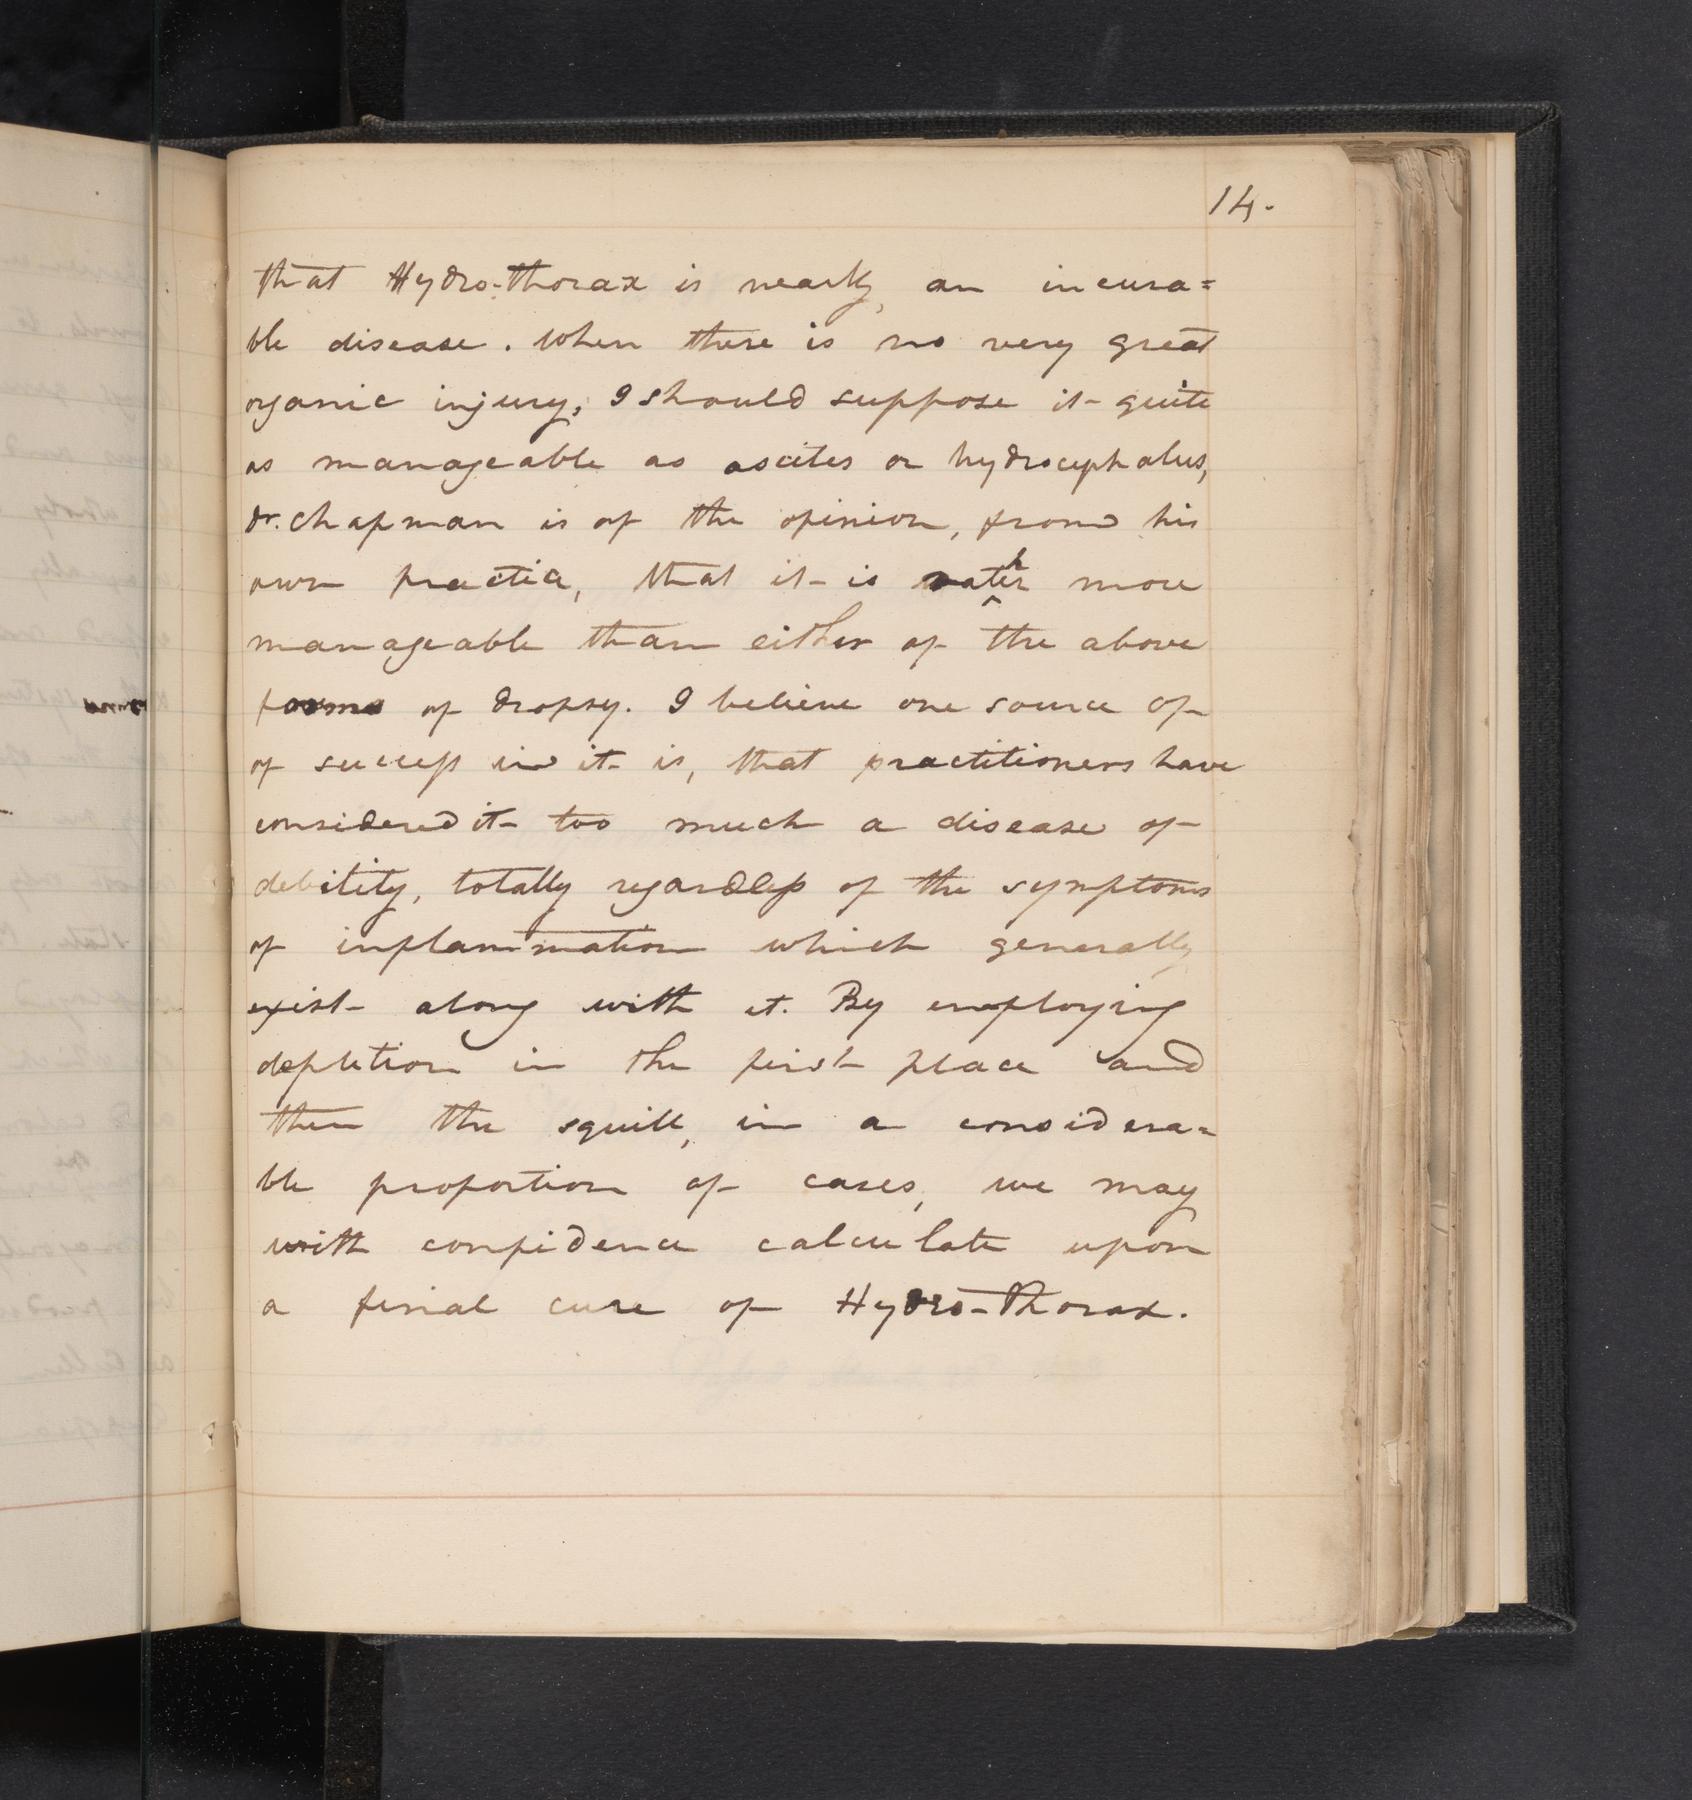 14.
that Hydro-thorax is nearly, an incura=
ble disease. When there is no very great
organic injury, I should suppose it quite
as manageable as ascites or hydrocephalus,
Dr. Chapman is of the opinion, from his
own practice, that it is rather more
manageable than either of the above
forms of dropsy. I believe one source of
of success in it is, that practitioners have
considered it too much a disease of
debility, totally regardless of the symptoms
of inflammation which generally
exist along with it. By employing
depletion in the first place and
then the squill, in a considera=
ble proportion of cases, we may
with confidence calculate upon
a finial cure of Hydro-Thorax.